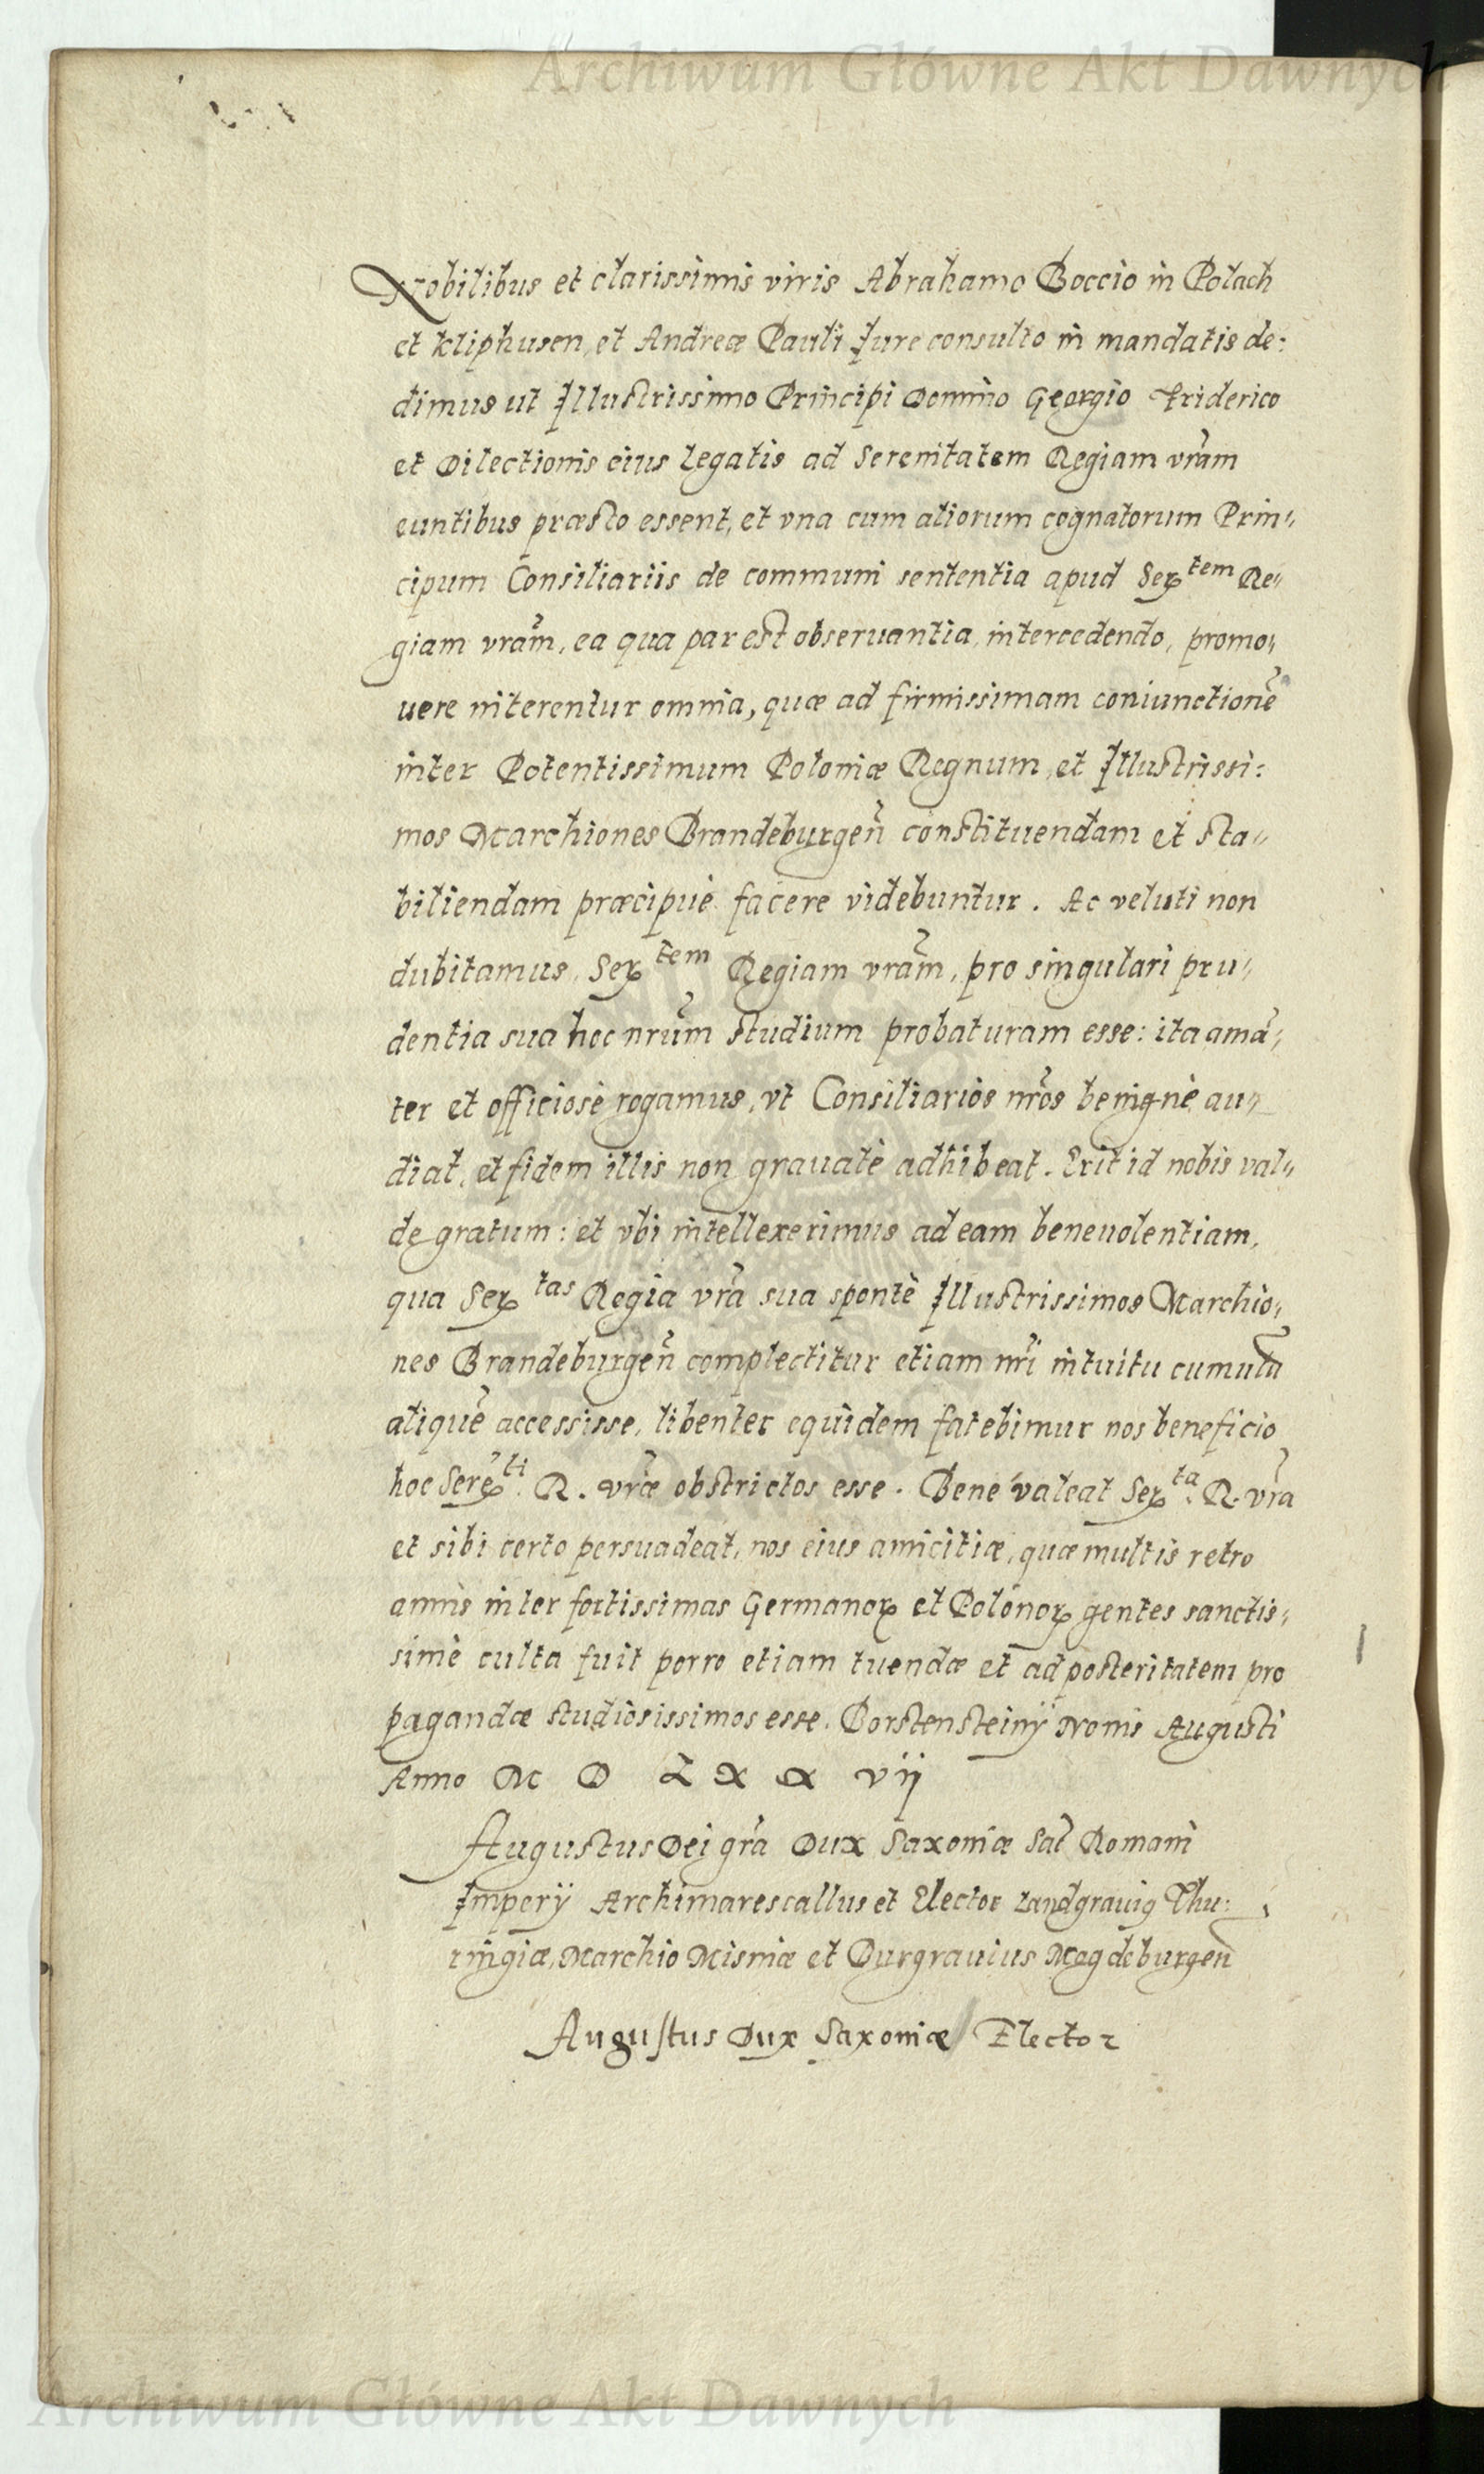 Archiwum Główne Akt Dawnych
Nobilibus et clarissimis viris Abrahamo Boccio in Polach
et Kliphusen, et Andreæ Pauli Jure consulto in mandatis de:
dimus ut Illustrissimo Principi Domino Georgio Friderico
et Dilectionis eius Legatis ad Serenitatem Regiam vr̃am
euntibus præsto essent, et vna cum aliorum cognatorum Prin„
cipum Consiliariis de communi sententia apud Serᵗᵉᵐ Re„
giam vr̃am, ea qua par est obseruantia, intercedendo, promo„
uere niterentur omnia, quæ ad firmissimam coniunctionẽ
inter Potentissimum Poloniæ Regnum, et Illustrissi:
mos Marchiones Brandeburgeñ constituendam et sta„
biliendam præcipuè facere videbuntur. Ac veluti non
dubitamus, Serᵗᵉᵐ Regiam vr̃am, pro singulari pru„
dentia sua hoc nr̃um studium probaturam esse: ita amã„
ter et officiosè rogamus, vt Consiliarios nr̃os benignè au„
diat, et fidem illis non grauatè adhibeat. Erit id nobis val„
de gratum: et vbi intellexerimus ad eam beneuolentiam,
qua Serᵗᵃˢ Regia vr̃a sua spontè Illustrissimos Marchio„
nes Brandeburgeñ complectitur etiam nr̃i intuitu cumulũ
aliquẽ accessisse, libenter equidem fatebimur nos beneficio
hoc Sereᵗⁱ. R. vr̃æ obstrictos esse. Bene valeat Serᵗᵃ. R. vr̃a
et sibi certo persuadeat, nos eius amicitiæ, quæ multis retro
annis inter fortissimas Germanoꝝ et Polonoꝝ gentes sanctis„
simè culta fuit porro etiam tuendæ et ad posteritatem pro
pagandæ studiosissimos esse. Borstensteinÿ Nonis Augusti
Anno M D L X X vij
Augustus Dei gr̃a Dux Saxoniæ Sac̃ Romani
Imperÿ Archimarescallus et Elector Landgrauiꝰ Thu:
ringiæ, Marchio Misniæ et Burgrauius Magdeburgeñ
Augustus Dux Saxoniæ Elector
Archiwum Główne Akt Dawnych